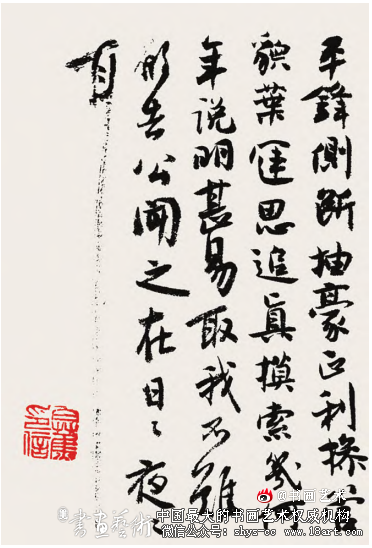 平鋒側斷抽豪正利操
貌葉匡思追真摸索幾千
年說明甚易取我不難
告公開之在日〻夜〻
有
印信
@书画艺术
書畫藝術
中国最大的书画艺术权威机构
微信公众号: shys-cc www.18art.com